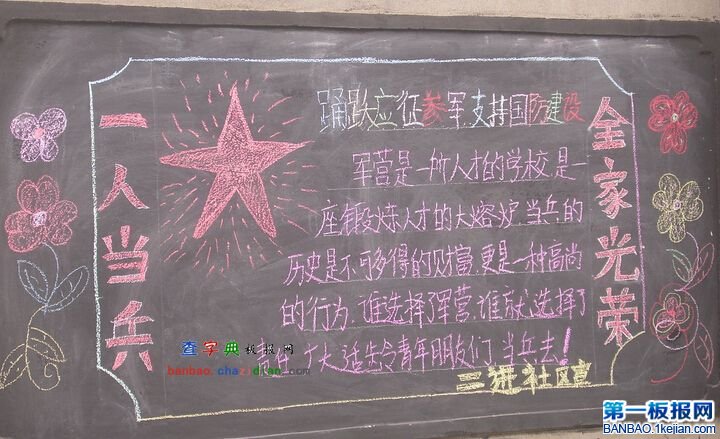 一人当兵
全家光荣
踊跃应征参军支持国防建设
军营是一所人才的学校是一
座锻炼人才的大熔炉当兵的
历史是不可多得的财富,更是一种高尚
的行为.谁选择了军营.谁就选择了
适龄青年朋友们当兵去!
三进社区宣
查字典板报网
banbao.chazidian.com
第一板报网
BANBAO.1kejian.com